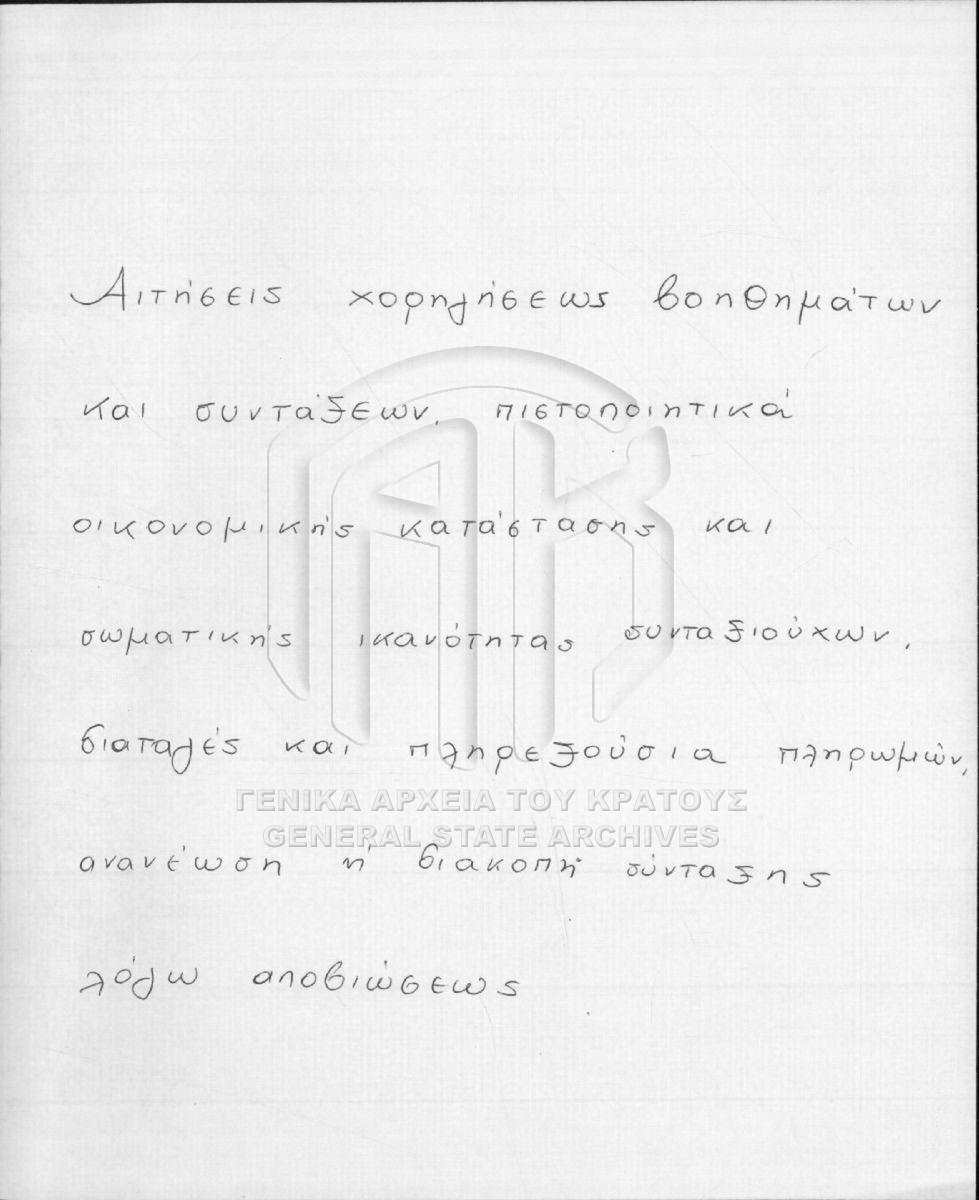 Αιτήσεις χορηγήσεως βοηθημάτων
και συντάξεων, πιστοποιητικά
οικονομικής κατάστασης και
σωματικής ικανότητας συνταξιούχων,
διαταγές και πληρεξούσια πληρωμών,
ΓΕΝΙΚΑ ΑΡΧΕΙΑ ΤΟΥ ΚΡΑΤΟΥΣ
GENERAL STATE ARCHIVES
ανανέωση ή διακοπή σύνταξης
λόγω αποβιώσεως